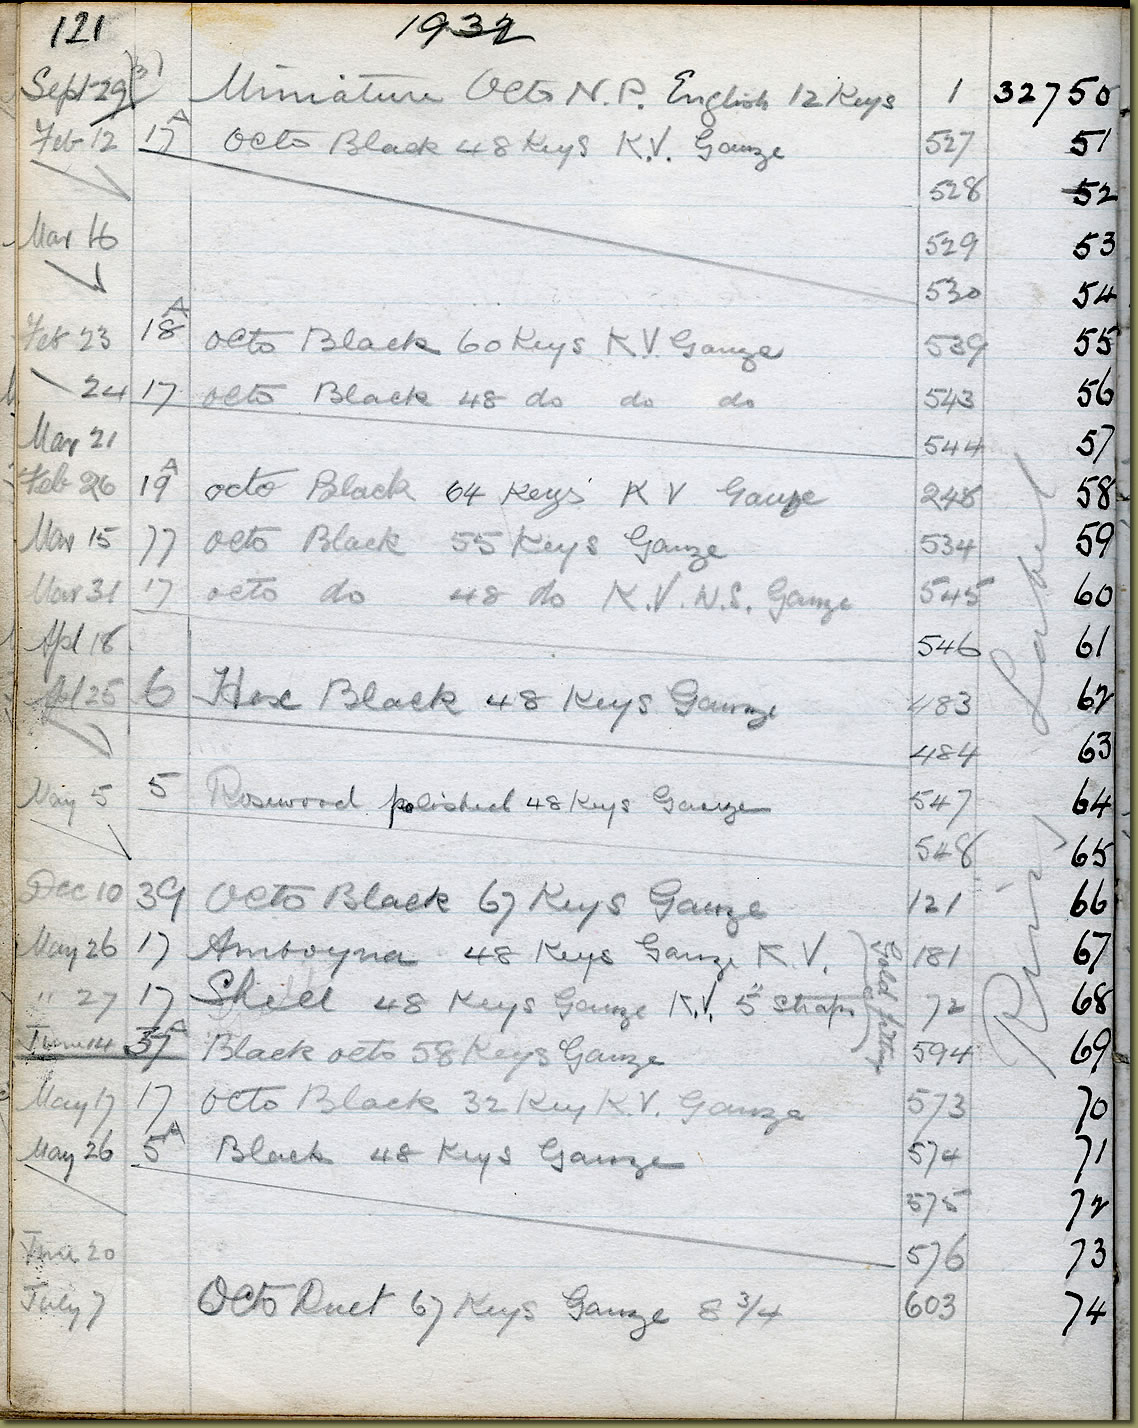 121 1932
Sept 29 31 Miniature Octo N.P. English 12 Keys 1 32750
Feb 12 17A Octo Black 48 Keys K.V. Gauze 527 51
528 52
Mar 16 529 53
530 54
Feb 23 18A Octo Black 60 Keys K.V. Gauze 539 55
24 17 octo Black 48 do do do 543 56
Mar 21 544 57
Feb 26 19A octo Black 64 Keys K V Gauze 248 58
Mar 15 77 octo Black 55 Keys Gauze 534 59
Mar 31 17 octo do 48 do K.V. N.S. Gauze 545 60
Apl 18 546 61
Apl 25 6 Hex Black 48 Keys Gauze 483 62
484 63
May 5 5 Rosewood polished 48 Keys Gauze 547 64
548 65
Dec 10 39 Octo Black 67 Keys Gauze 121 66
May 26 17 Amboyna 48 Keys Gauze K.V. 181 67
" 27 17 Shell 48 Keys Gauze K.V. 5" straps 72 68
Gold fitting
June 14 37A Black octo 58 Keys Gauze 594 69
May 17 17 Octo Black 32 Key K.V. Gauze 573 70
May 26 5A Black 48 Keys Gauze 574 71
575 72
June 20 576 73
July 7 Octo Duet 67 Keys Gauze 8 3/4 603 74